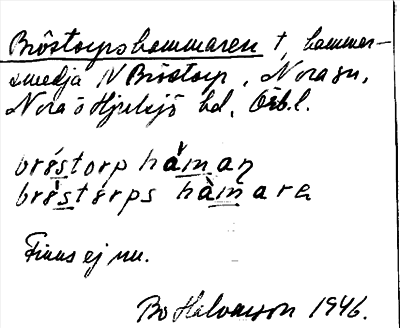 Bröstorpshammaren †, hammar-
smedja N Bröstorp, Nora sn,
Nora o Hjulsjö bd, Örb.l.
bröstorp hàman
bröstorps hàmaren
Finns ej nu.
Bo Halvarsson 1946.